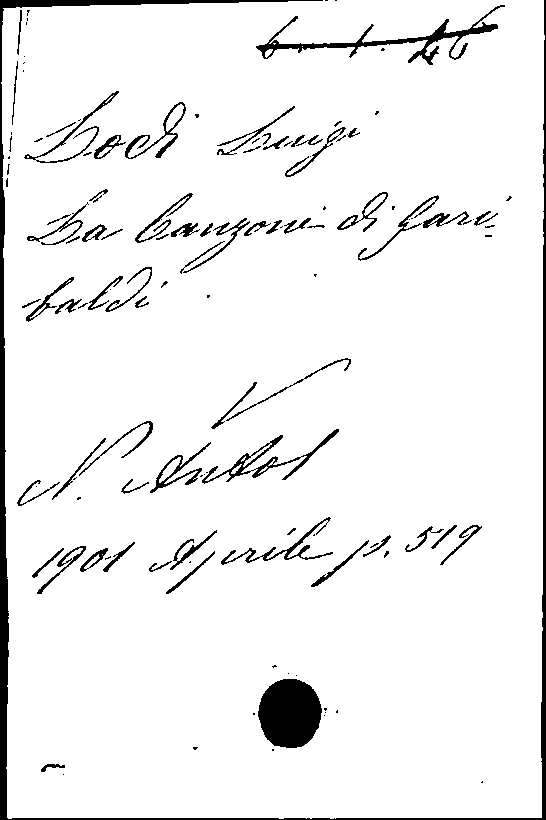 6 - 1. 46
Lodi Luigi
La Canzone di Gari-
baldi.
V
N. Antol
1901 Aprile p. 519